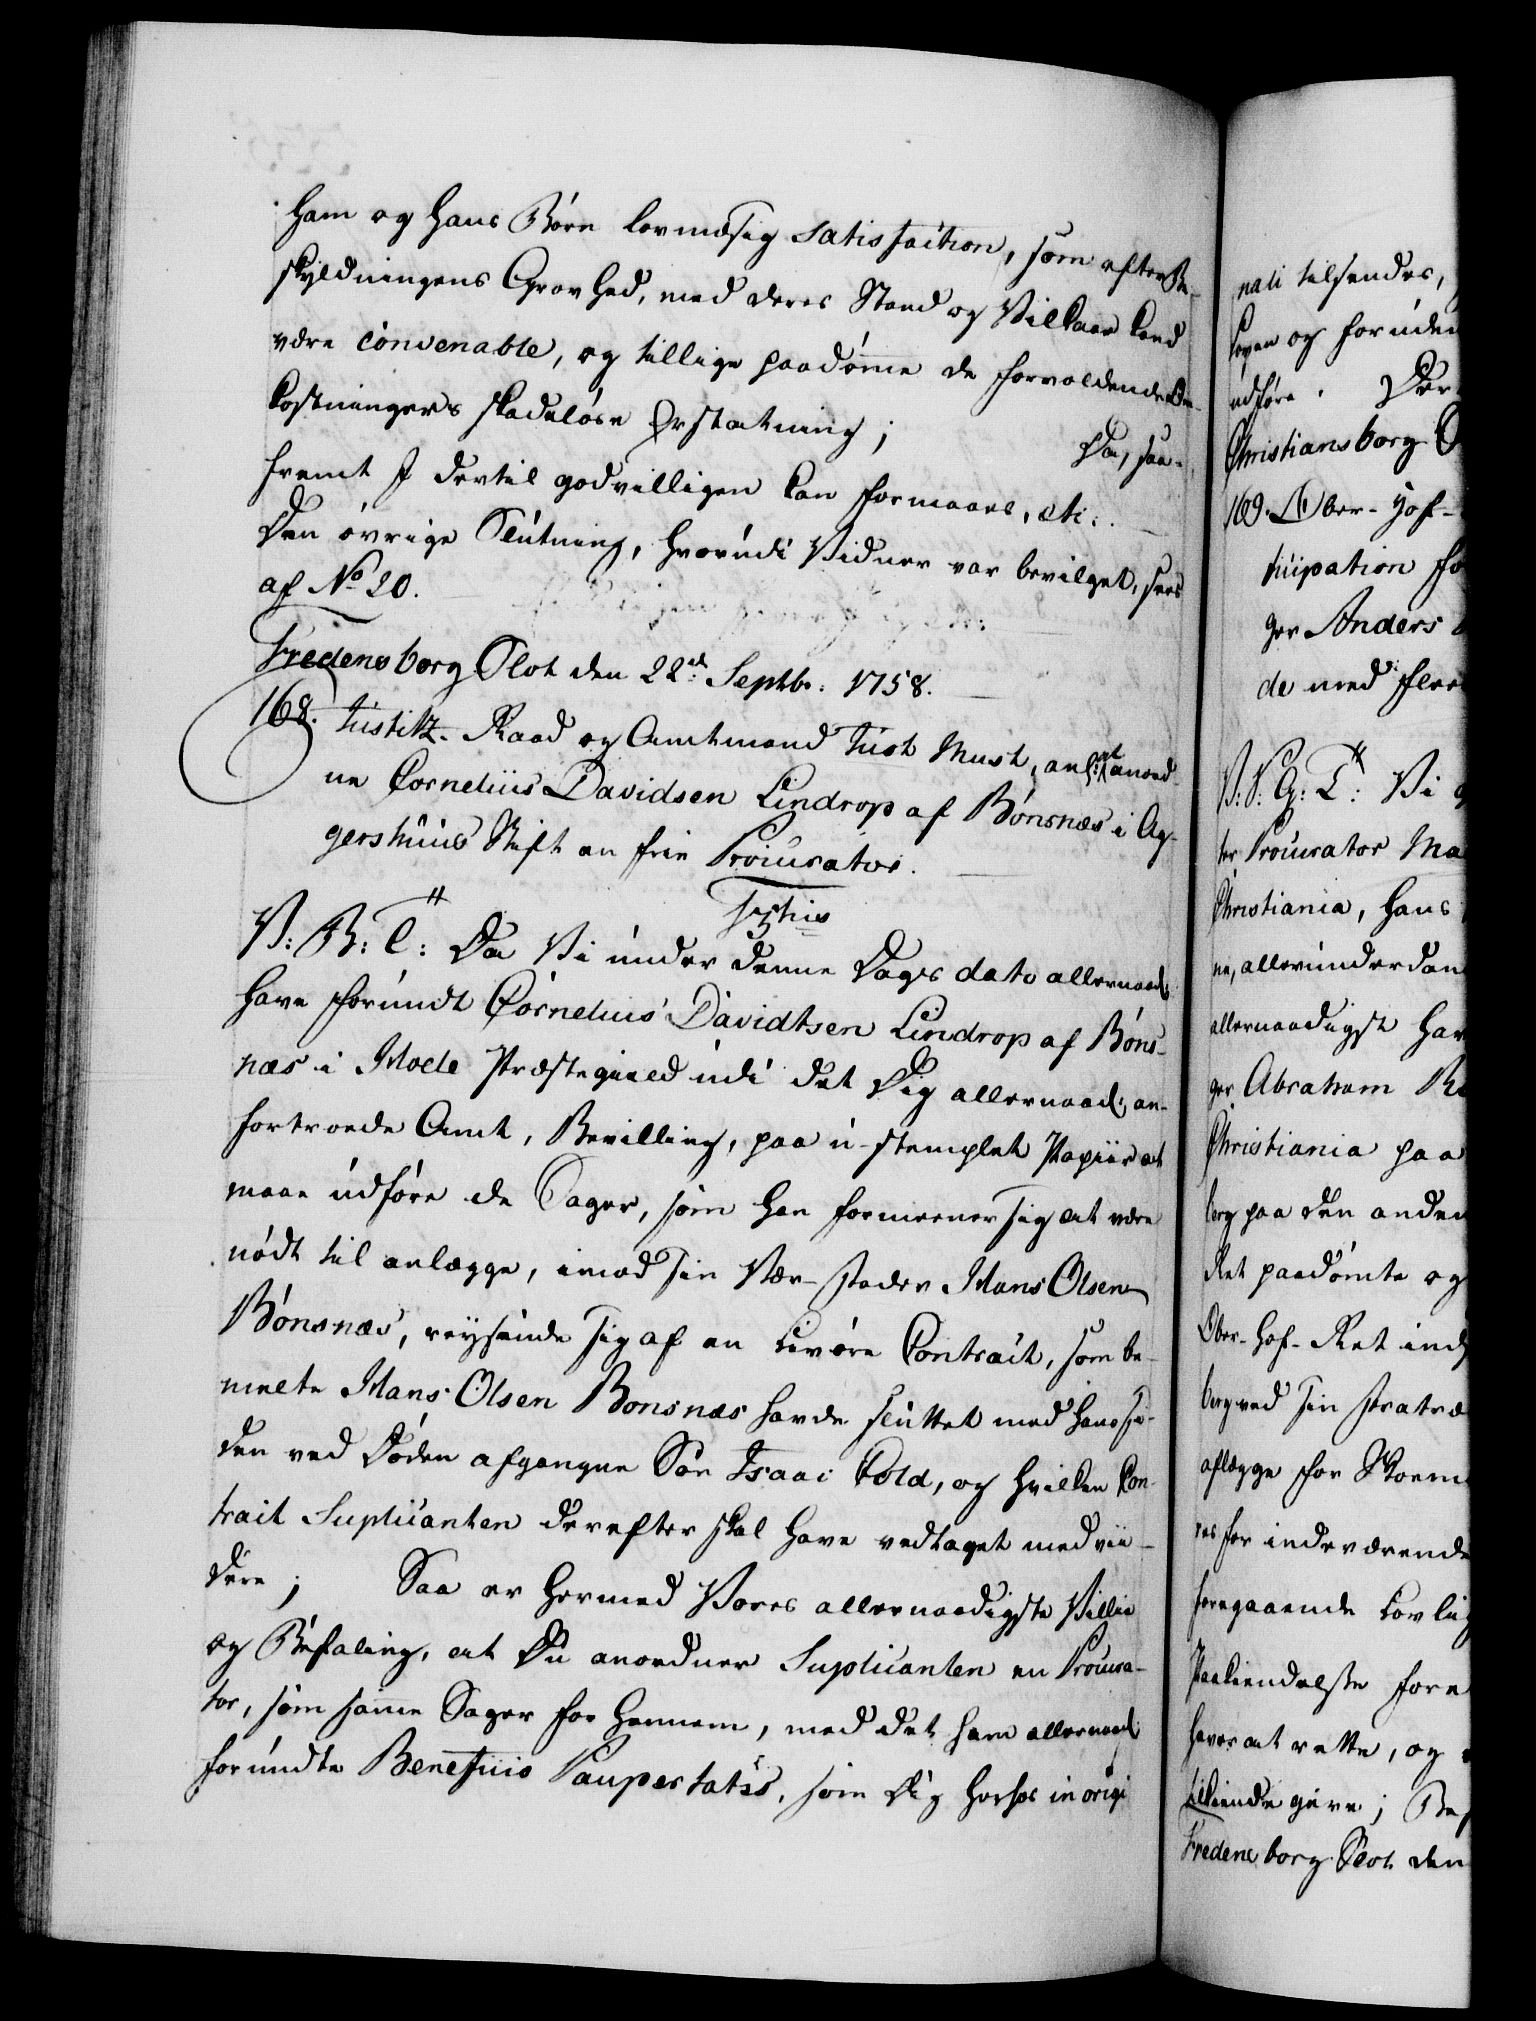 ham og hans Børn lovmæsig Satisfaction, som efter Be-
skyldningens Grovhed, med deres Stand og Vilkaar kand
være convenable, og tillige paadømme de forvoldende Be-
kostningers skadesløse Erstatning; Da, saa-
fremt I dertil godvilligen kan formaaes, etc:
Den øvrige Slutning, hvorudi Vidner var bevilget, sees
af No 20.
Fredensborg Slot den 22de Septbr: 1758.
168. Justitz-Raad og Amtmand Just Must, anl: at anord-
ne Cornelius Davidsen Lindrop af Bónsnæs i Ag-
gershuus Stift en frie Procurator.
V: B: T: Da Vi under denne Dags dato allernaad:
have forundt Cornelius Davidtsen Lindrop af Bóns-
næs i Hoele Præstegield udi det Dig allernaad: an-
fortroede Amt, Bevilling, paa u-stemplet Papiir at
maae udføre de Sager, som han formeener sig at være
nødt til anlægge, imod sin Vær-fader Hans Olsen
Bónsnæs, reysende sig af en Livøre Contract, som be-
melte Hans Olsen Bonsnæs havde sluttet med hans si-
den ved Døden afgangne Søn Isaac Cold, og hvilken Con-
tract Suplicanten derefter skal have vedtaget med vii-
dere; Saa er hermed Vores allernaadigste Villie
og Befaling, at Du anordner Suplicanten en Procura-
tor, som samme Sager for hannem, med det ham allernaad:
forundte Beneficio Paupertatis, som Dig herhos in origi
nali tilsendes,
loven og foruden
udføre. Der
Christiansborg
169. Ober-Hof-
ticipation fo
ger Anders
de med fleer
V: V: G: T: Vi
ter Procurator Ma
Christiania, hans
ne, allerunderdan
allernaadigst har
ger Abraham
Christiania paa
berg paa den anden
Ret paadømte og
Ober-Hof-Ret ind
berg ved sin
aflegge for
res for indeværende
foregaaende Lovlig
Paakiendelse fore
haver at rette, og
tilkiende give; Be
Fredensborg Slot den